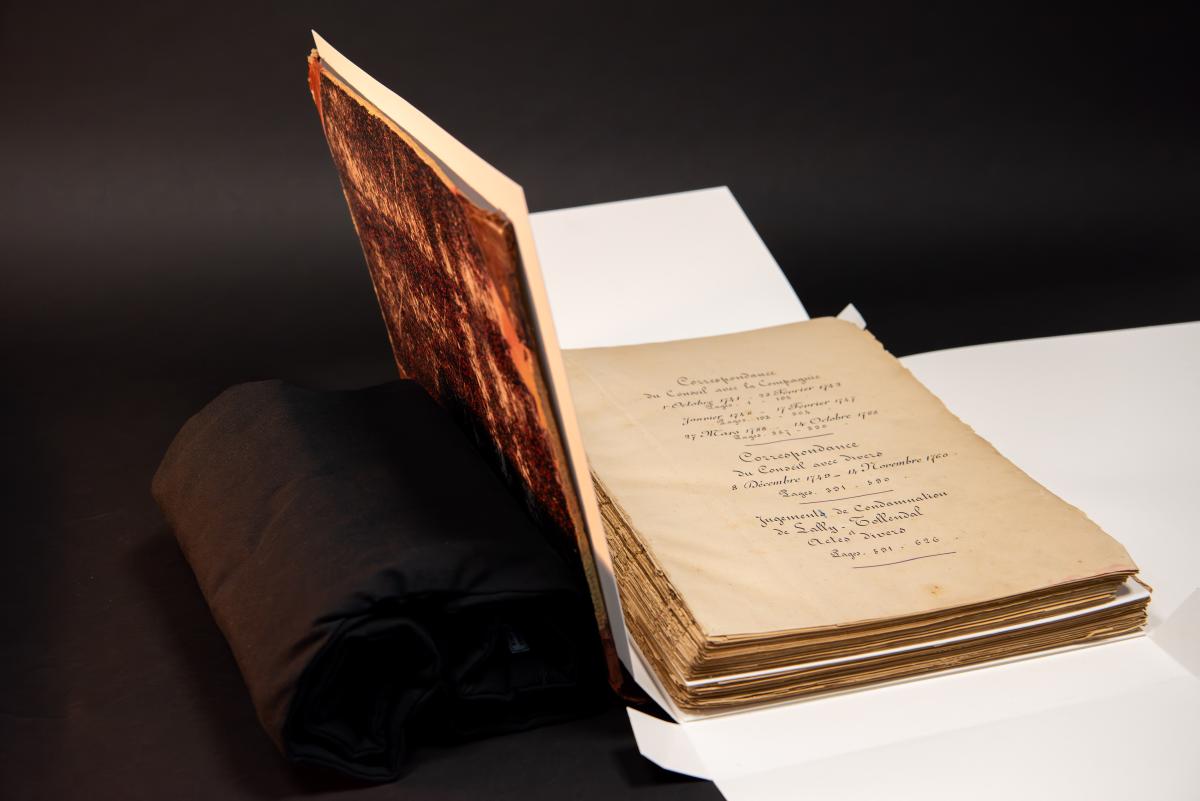 Correspondance
du Conseil avec la Compagnie
1 Octobre 1741 - 22 Février 1743
Pages. 1 - 102
Janvier 1746 - 17 Février 1747
Pages. 102 -
27 Mars - 14 Octobre
Pages. 
Correspondance
du Conseil avec divers
8 Décembre 1740 - 14 Novembre 1760
Pages. 391 - 590
Jugements de Condamnation
de Lally-Tollendal
Actes divers
Pages. 591 - 626